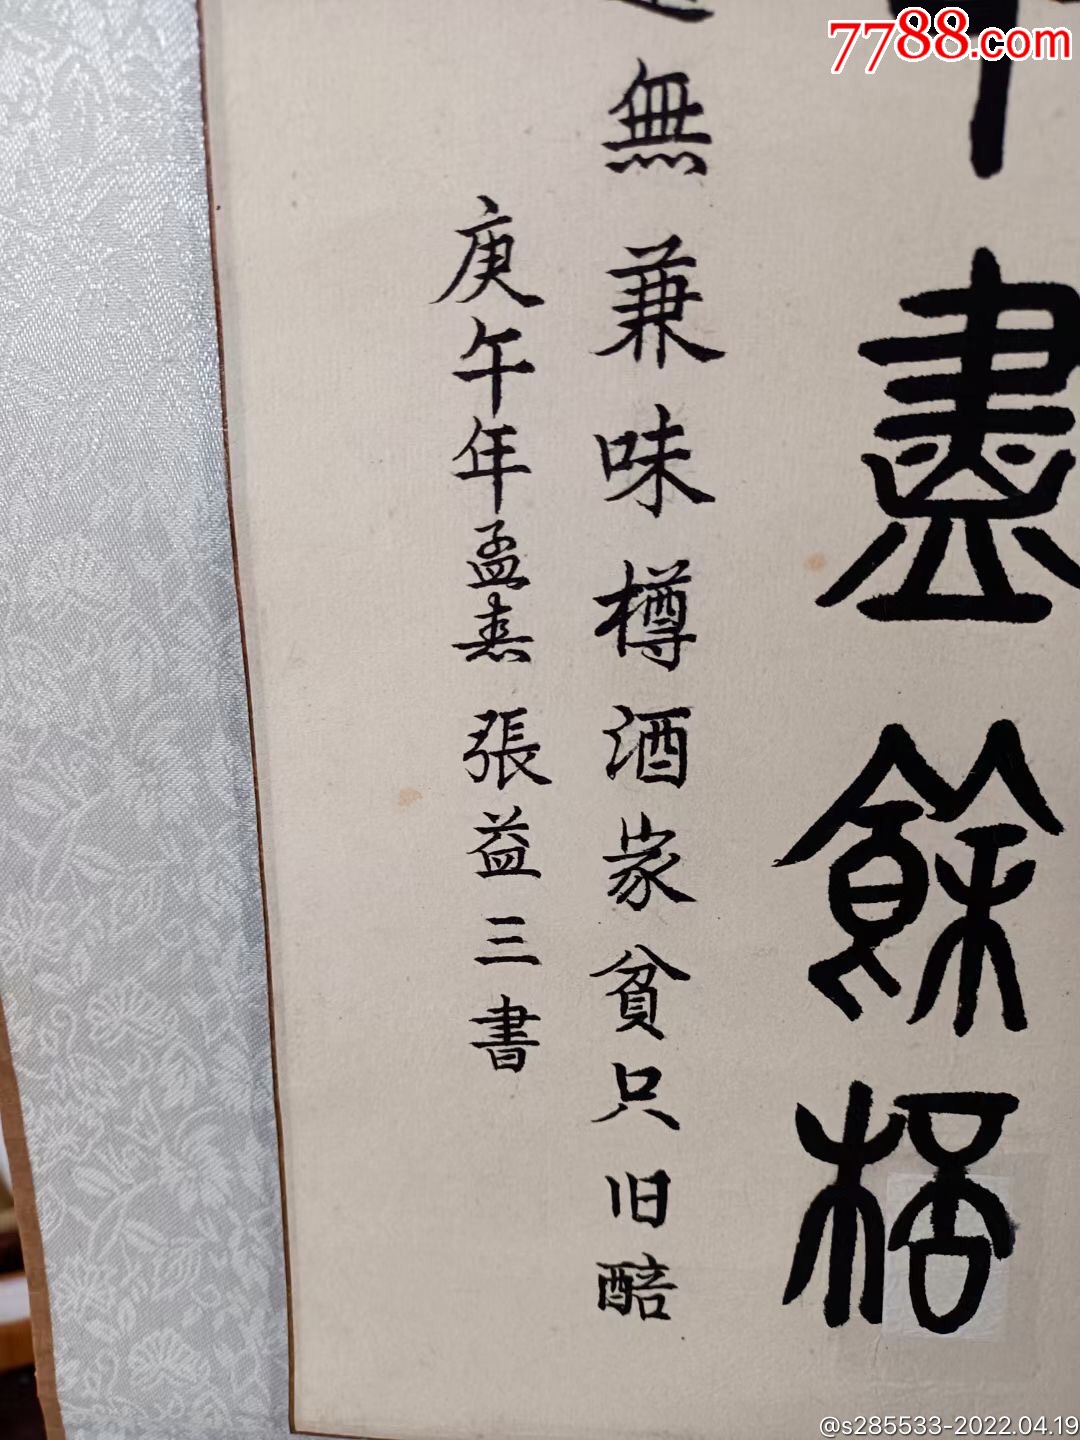 7788.com
盡餘桮
無兼味樽酒家貧只旧醅
庚午年孟春張益三書
@s285533-2022.04.19